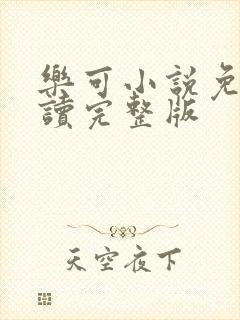 樂可小説免
讀完整版
天空夜下